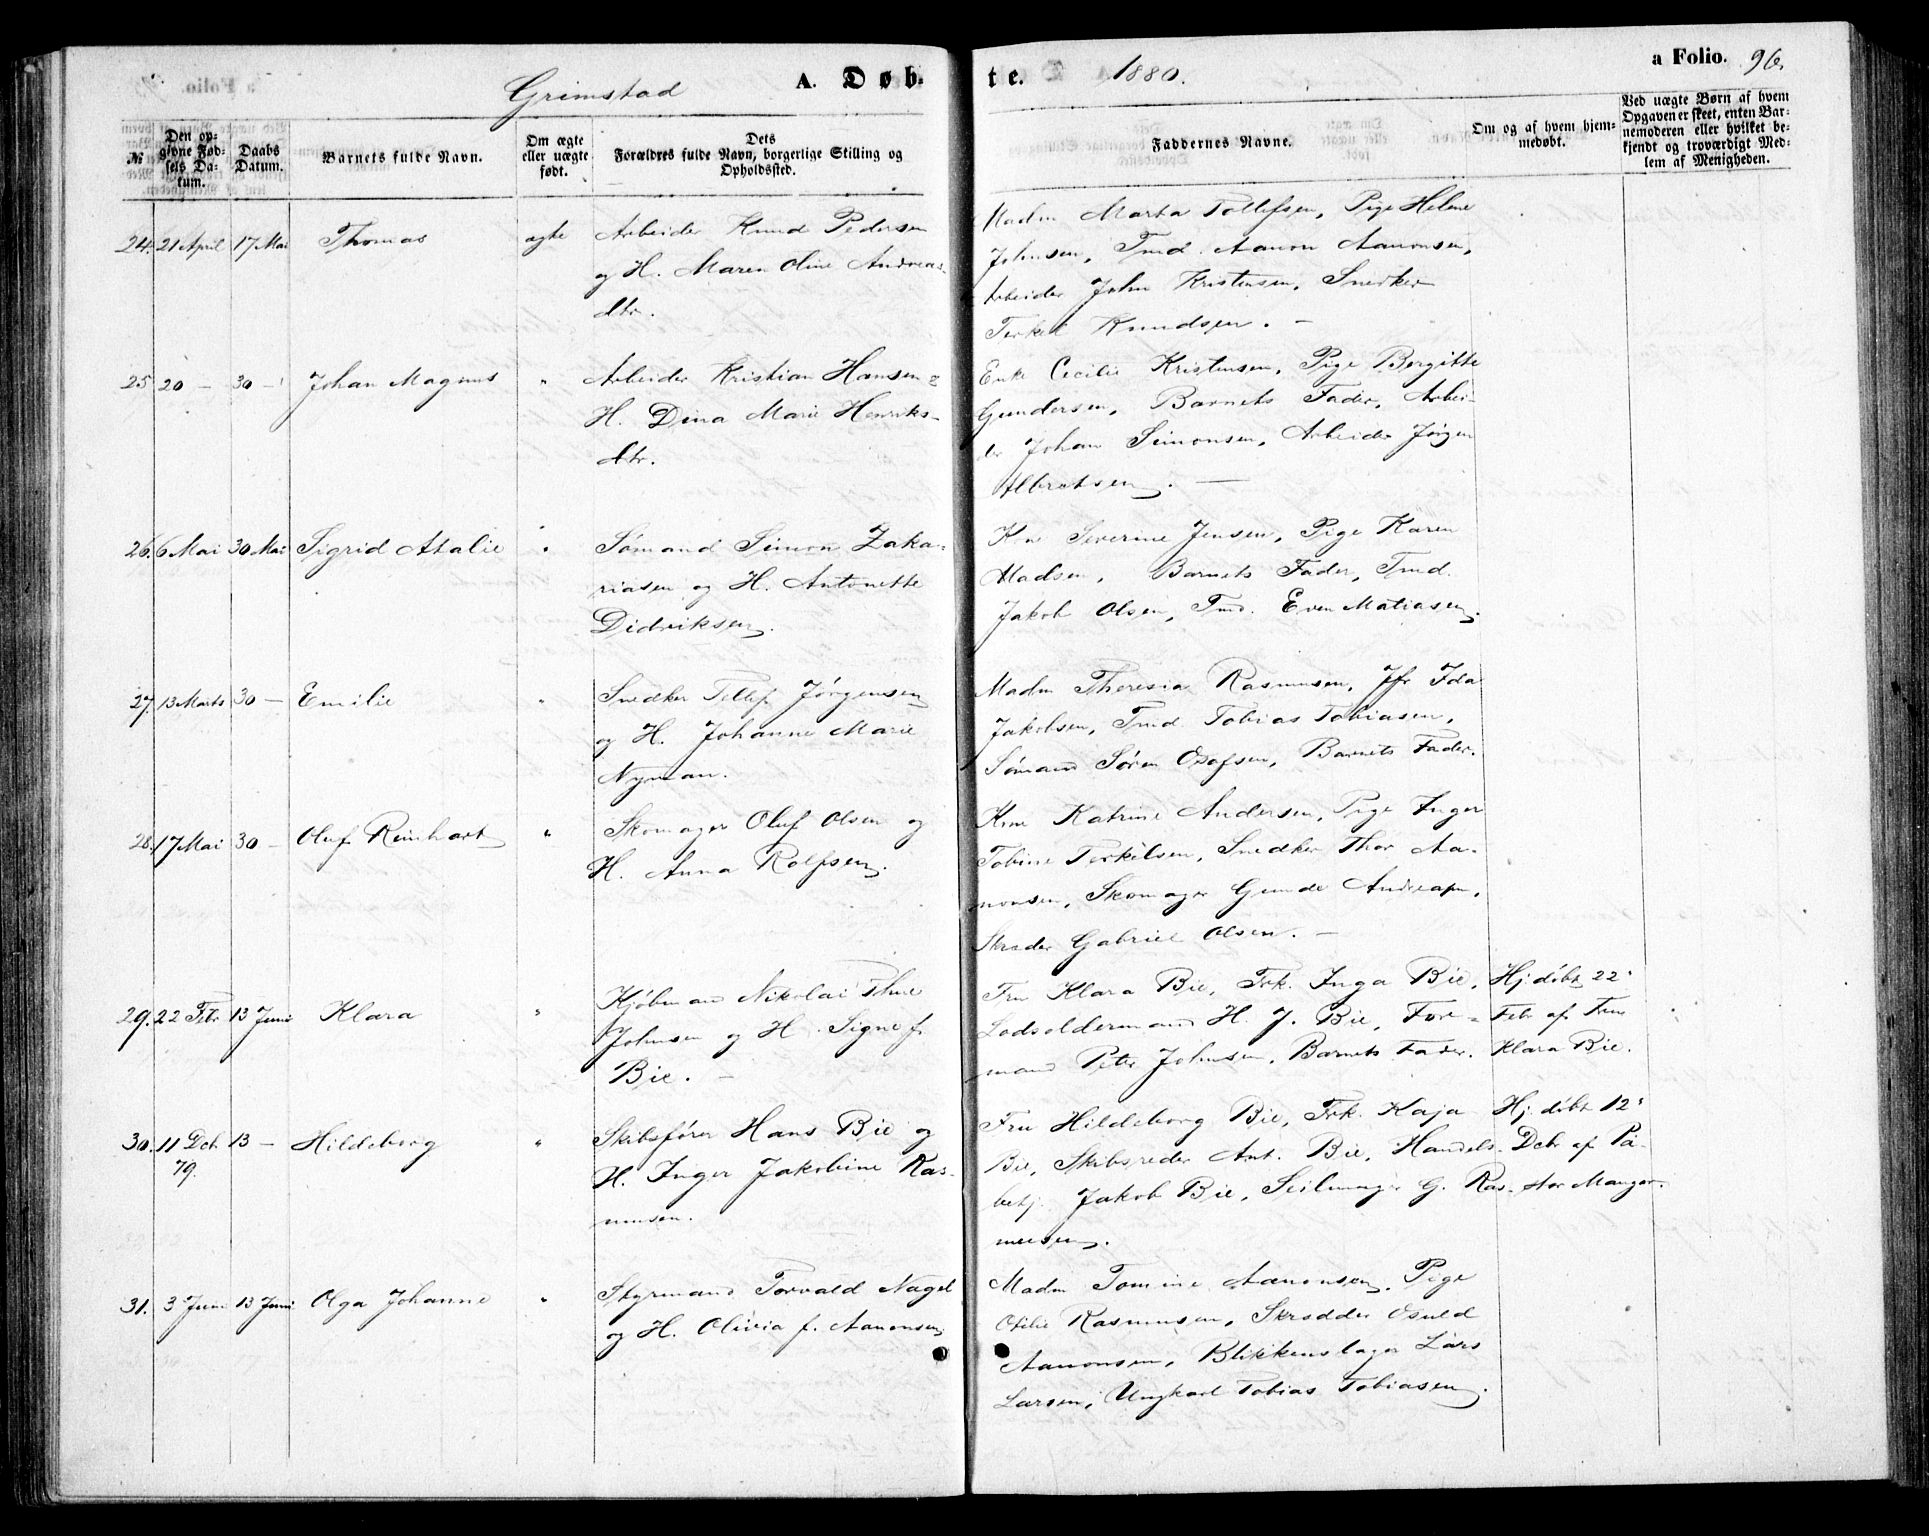 Grimstad
A. Døb-
te.
1880.
a Folio. 96.
№
Den op-
givne Fød-
sels Da-
tum.
Daabs
Datum.
Barnets fulde Navn.
Om ægte
eller uægte
født.
Dets
Forældres fulde Navn, borgerlige Stilling og
Opholdssted.
Faddernes Navne.
Om og af hvem hjem-
medøbt.
Ved uægte Børn af hvem
Opgaven er skeet, enten Bar-
nemoderen eller hvilket be-
kjendt og troværdigt Med-
lem af Menigheden.
24. 21 April 17 Mai Thomas ægte
Arbeider Knud Pedersen
og H. Maren Oline Andreas-
dtr.
Madm Marta Tollefsen, Pige Helene
Johnsen, Tmd. Aanon Aanonsen,
Arbeider John Kristensen, Snedker
Terkel Knudsen. —
25 20 — 30 — Johan Magnus "
Arbeider Kristian Hansen &
H. Dina Marie Henriks-
dtr.
Enke Cecilie Kristensen, Pige Bergitte
Gundersen, Barnets Fader, Arbei-
der Johan Simonsen, Arbeider Jørgen
Albretsen. —
26. 6 Mai 30 Mai Sigrid Atalie "
Sømand Simon Zaka-
riasen og H. Antonette
Didriksen.
Kne Severine Jensen, Pige Karen
Madsen, Barnets Fader, Tmd.
Jakob Olsen, Tmd. Even Matiasen.
27. 13 Marts 30 — Emilie "
Snedker Tellef Jørgensen
og H. Johanne Marie
Nyman.
Madm Theresia Rasmusen, Jfr Ida
Jakobsen, Tmd Tobias Tobiasen,
Sømand Søren Olafsen, Barnets Fader.
28. 17 Mai 30 — Oluf Reinhart "
Skomager Oluf Olsen og
H. Anna Rolfsen.
Kone Katrine Andersen, Pige Inger
Tobine Terkelsen, Snedker Thor Aa-
nonsen, Skomager Gunde Andreasen,
Skræder Gabriel Olsen. —
29. 22 Febr 13 Juni Klara "
Kjøbmand Nikolai Thue
Johnsen og H. Signe f.
Bie. —
Fru Klara Bie, Frk. Inga Bie,
Lodsoldermand H. J. Bie, For-
mand Peter Johnsen, Barnets Fader.
Hj. døbt 22
Febr af Fru
Klara Bie.
30. 11 Dcb. 13 — Hildeborg "
79.
Skibsfører Hans Bie og
H. Inger Jakobine Ras-
musen.
Fru Hildeborg Bie, Frk. Kaja
Bie, Skibsreder Ant. Bie, Handels-
betj. Jakob Bie, Seilmager G. Ras-
musen.
Hj. døbt 12
Dcbr af Pa-
stor Manger.
31. 3 Juni 13 Juni Olga Johanne "
Styrmand Torvald Nagel
og H. Olivia f. Aanonsen
Madm Tomine Aanonsen, Pige
Otilie Rasmusen, Skrædder Osuld
Aanonsen, Blikkenslager Lars
Larsen, Ungkarl Tobias Tobiasen.